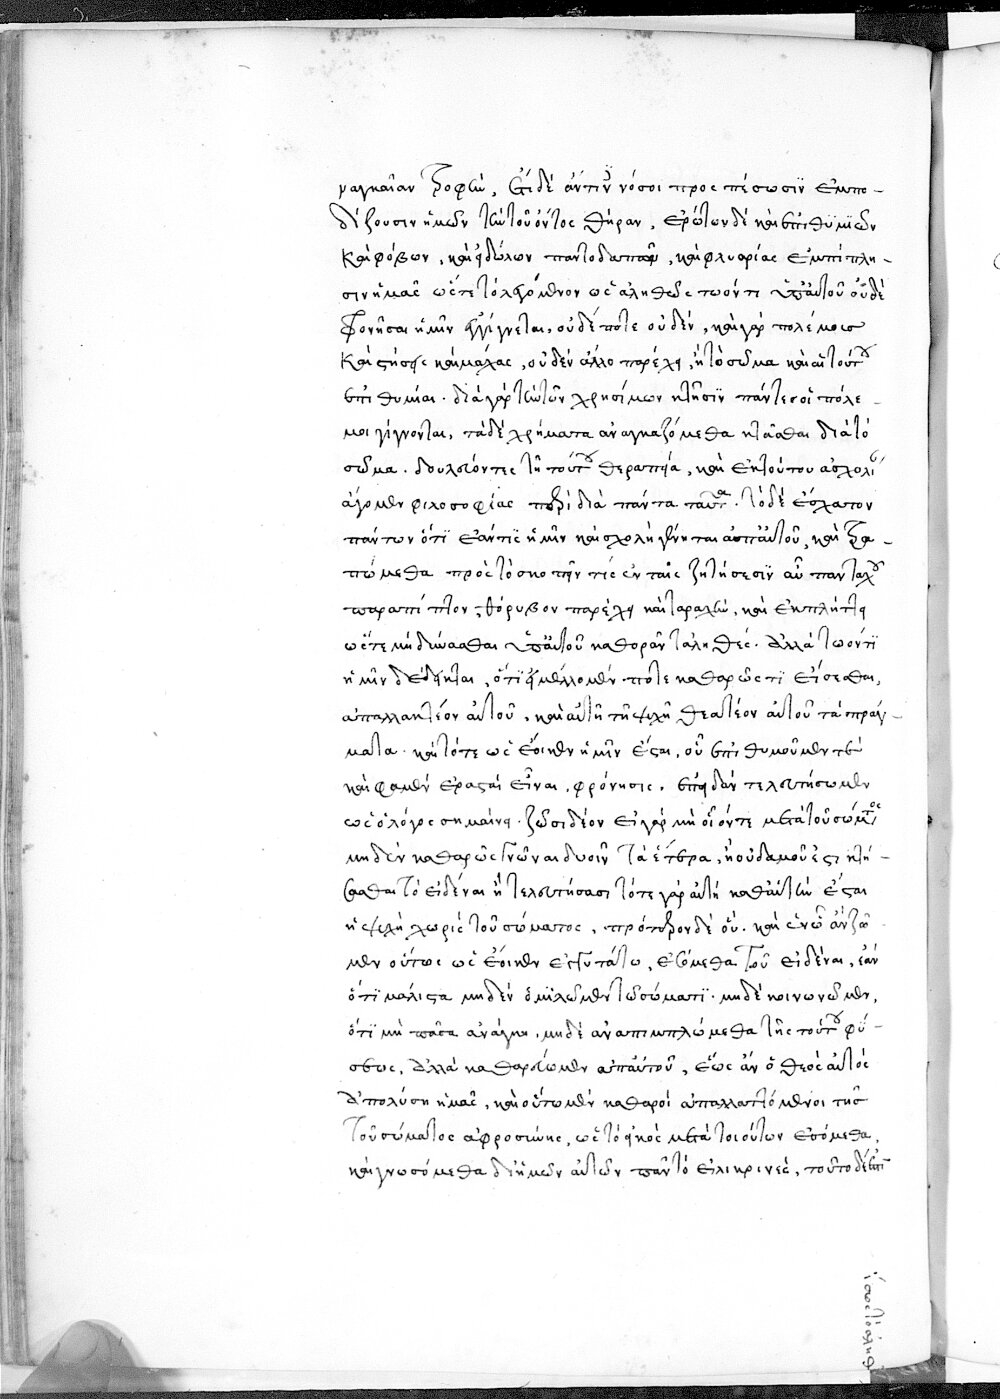 ναγκαῖαν τροφήν, ἔτι δὲ ἄν τινες νόσοι προσπέσωσιν ἐμπο-
δίζουσιν ἡμῶν τὴν τοῦ ὄντος θήραν. ἐρώτων δὲ καὶ ἐπιθυμιῶν
καὶ φόβων, καὶ εἰδώλων παντοδαπῶν, καὶ φλυαρίας ἐμπίπλη-
σιν ἡμᾶς ὥστε τὸ λεγόμενον ὡς ἀληθῶς τῶ ὄντι ὑπ' αὐτοῦ οὐδὲ
φρονῆσαι ἡμῖν ἐγγίγνεται, οὐδέποτε οὐδέν, καὶ γὰρ πολέμους
καὶ στάσεις καὶ μάχας, οὐδὲν ἄλλο παρέχει, ἢ τὸ σῶμα καὶ αἱ τούτου
ἐπιθυμίαι. διὰ γὰρ τὴν τῶν χρησίμων κτῆσιν πάντες οἱ πόλε-
μοι γίγνονται, τὰ δὲ χρήματα ἀναγκαζόμεθα κτᾶσθαι διὰ τὸ
σῶμα. δουλεύοντες τῆ τούτου θεραπεία, καὶ ἐκ τούτου ἀσχολίαν
ἄγομεν φιλοσοφίας πέρι διὰ πάντα ταῦτα. τὸ δὲ ἔσχατον
πάντων ὅτι ἐάν τις ἡμῖν καὶ σχολὴ γένηται ἀπ' αὐτοῦ, καὶ τρα-
πώμεθα πρὸς τὸ σκοπεῖν τι, ἐν ταῖς ζητήσεσιν αὖ πανταχοῦ
παραπίπτον, θόρυβον παρέχει καὶ ταραχήν, καὶ ἐκπλήττει
ὥστε μὴ δύνασθαι ὑπ' αὐτοῦ καθορᾶν τἀληθές. ἀλλὰ τῶ ὄντι
ἡμῖν δέδεικται, ὅτι εἰ μέλλομέν ποτε καθαρῶς τι εἴσεσθαι,
ἀπαλλακτέον αὐτοῦ, καὶ αὐτῆ τῆ ψυχῆ θεατέον αὐτοῦ τὰ πράγ-
ματα. καὶ τότε ὡς ἔοικεν ἡμῖν ἔσται, οὗ ἐπιθυμοῦμέν τε
καί φαμεν ἐρασταὶ εἶναι, φρόνησις, ἐπειδὰν τελευτήσωμεν
ὡς ὁ λόγος σημαίνει. ζῶσι δὲ οὔ. εἰ γὰρ μὴ οἷόν τε μετὰ τοῦ σώματος
μηδὲν καθαρῶς γνῶναι δυοῖν τὰ ἕτερα, ἢ οὐδαμοῦ ἔστι κτή-
σασθαι τὸ εἰδέναι ἢ τελευτήσασι τότε γὰρ αὐτὴ καθ' αὑτὴν ἔσται
ἡ ψυχὴ χωρὶς τοῦ σώματος, πρότερον δὲ οὔ. καὶ ἐν ᾧ ἂν ζῶ-
μεν οὕτως ὡς ἔοικεν ἐγγυτάτω, ἐσόμεθα τοῦ εἰδέναι, ἐὰν
ὅτι μάλιστα μηδὲν ὁμιλῶμεν τῶ σώματι. μηδὲ κοινωνῶμεν,
ὅτι μὴ πᾶσα ἀνάγκη, μηδὲ ἀναπιμπλώμεθα τῆς τούτου φύ-
σεως, ἀλλὰ καθαρεύωμεν ἀπ' αὐτοῦ, ἕως ἂν ὁ θεὸς αὐτὸς
ἀπολύση ἡμᾶς, καὶ οὕτω μὲν καθαροὶ ἀπαλλαττόμενοι τῆς
τοῦ σώματος ἀφροσύνης, ὡς τὸ εἰκὸς μετὰ τοιούτων ἐσόμεθα,
καὶ γνωσόμεθα δι' ἡμῶν αὐτῶν πᾶν τὸ εἰλικρινές, τοῦτο δέ ἐστιν
ἴσως τὸ ἀληθὲς